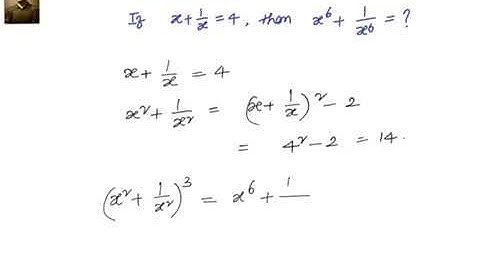 If x + 1/x = 4, then x⁶ + 1/x⁶ = ?
x + 1/x = 4
x² + 1/x² = (x + 1/x)² - 2
= 4² - 2 = 14.
(x² + 1/x²)³ = x⁶ + 1/